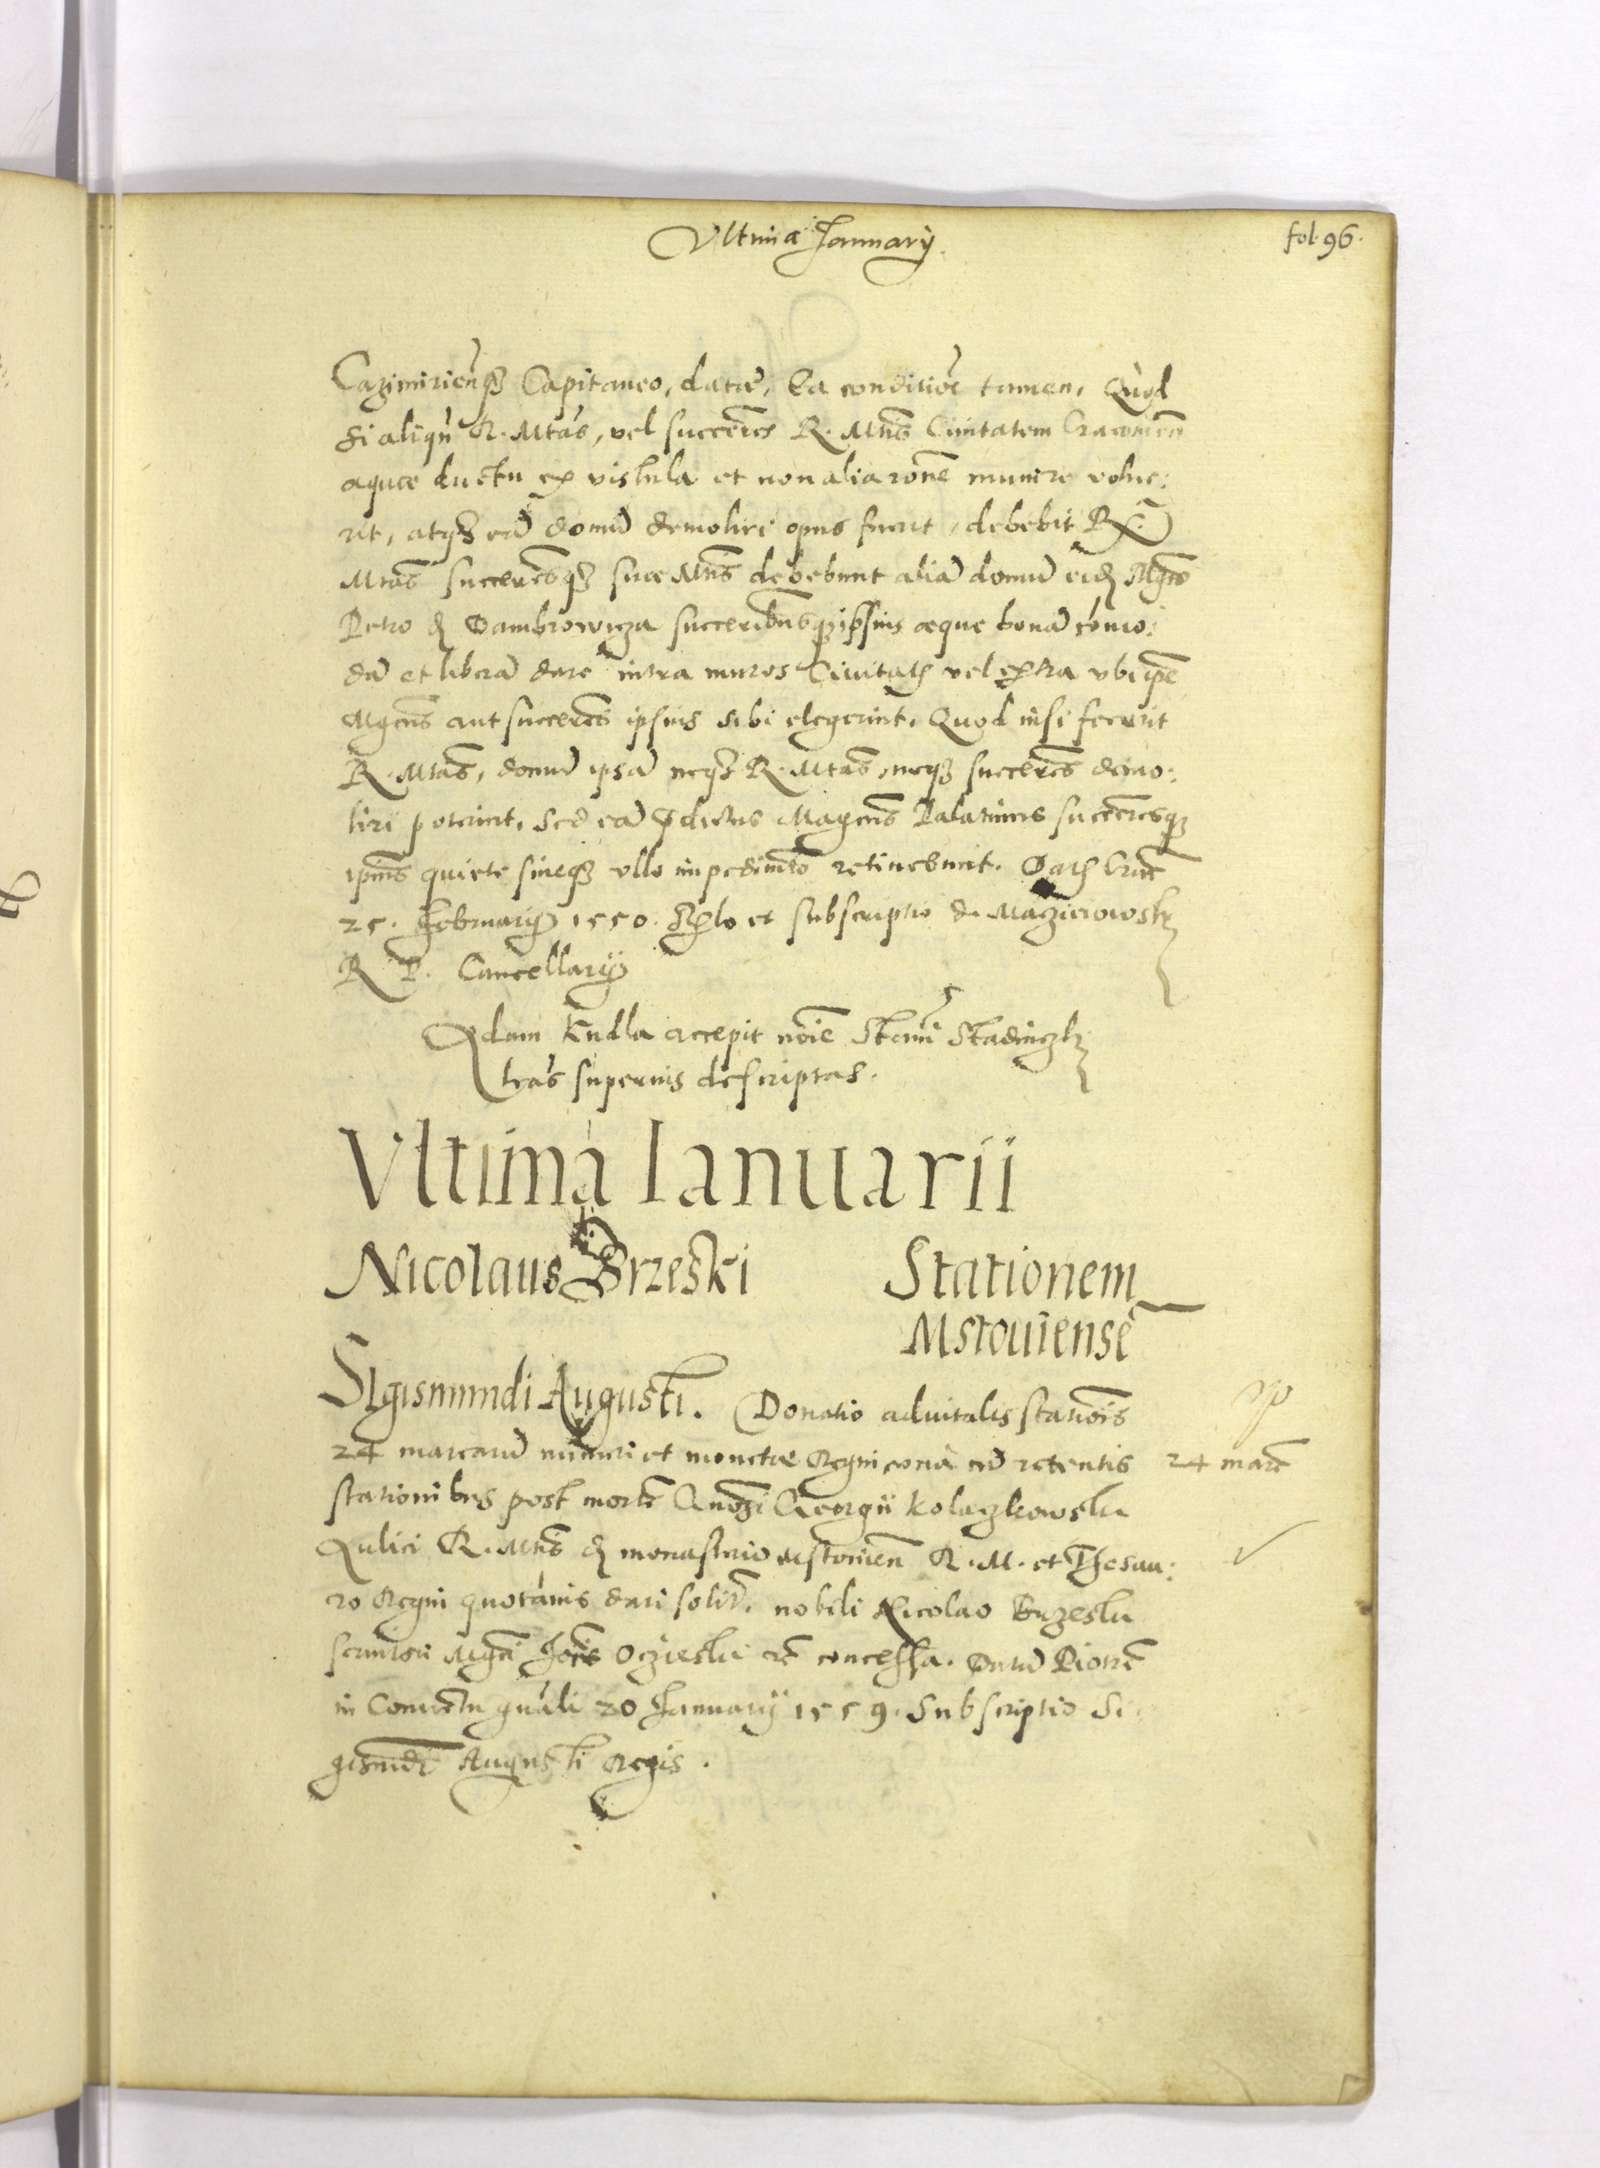 Vltima January
fol. 96.
Cazimirieñsq₃ Capitaneo, datæ, Ea conditiōe tamen, Quod
si aliqñ R. Mtãs, vel succeres R. Mtis Ciuitatem Cracouieñ
aquæ ductu ex vistula et non alia rōne munire volue:
rit, atq₃ eā domū demoliri opus fuerit, debebit R.
Mtas succeresq₃ suæ Mtis debebunt aliā domū eid Mgco
Petro d Dambrowicza succeribusq₃ ipsius æque bonā cōmo:
dā et liberā dare intra muros Ciuitatis vel extra vbi ipse
Mgcus aut succeres ipsius sibi elegerint, Quod nisi fecerit
R. Mtas, domū ipsā neq₃ R. Mtas, neq₃ succeres demo:
liri poterint, sed eā pdictus Magcus Palatinus succeresq₃
ipsius quiete sineq₃ vllo impedimēto retinebunt. Datt Crac
25. February 1550. Sglo et subscriptio d. Macziewowsky
R P. Cancellary
Adam Kudla accepit noīe Stani Stadniczky
lrās superius descriptas.
Vltima Ianuarii
Nicolaus Brzeski Stationem
Mstouiensē
Sigismundi Augusti. Donatio aduitalis stationis
24 marcarū numeri et monetæ Regni, conā cū retentis
24 marc
stationibus post mortē Gnosi Georgii Kolaczkowski
Aulici R. Mtis d monasterio Mstouien R. M. et Thesau:
ro Regni quotānis dari solit. nobili Nicolao Brzeski
seruitori Mgci Joīs Oczieski etc concessa. Datū Piotrc
in Conuētu gnāli 20 January 1559. Subscriptio Si
gismūdi Augusti Regis.